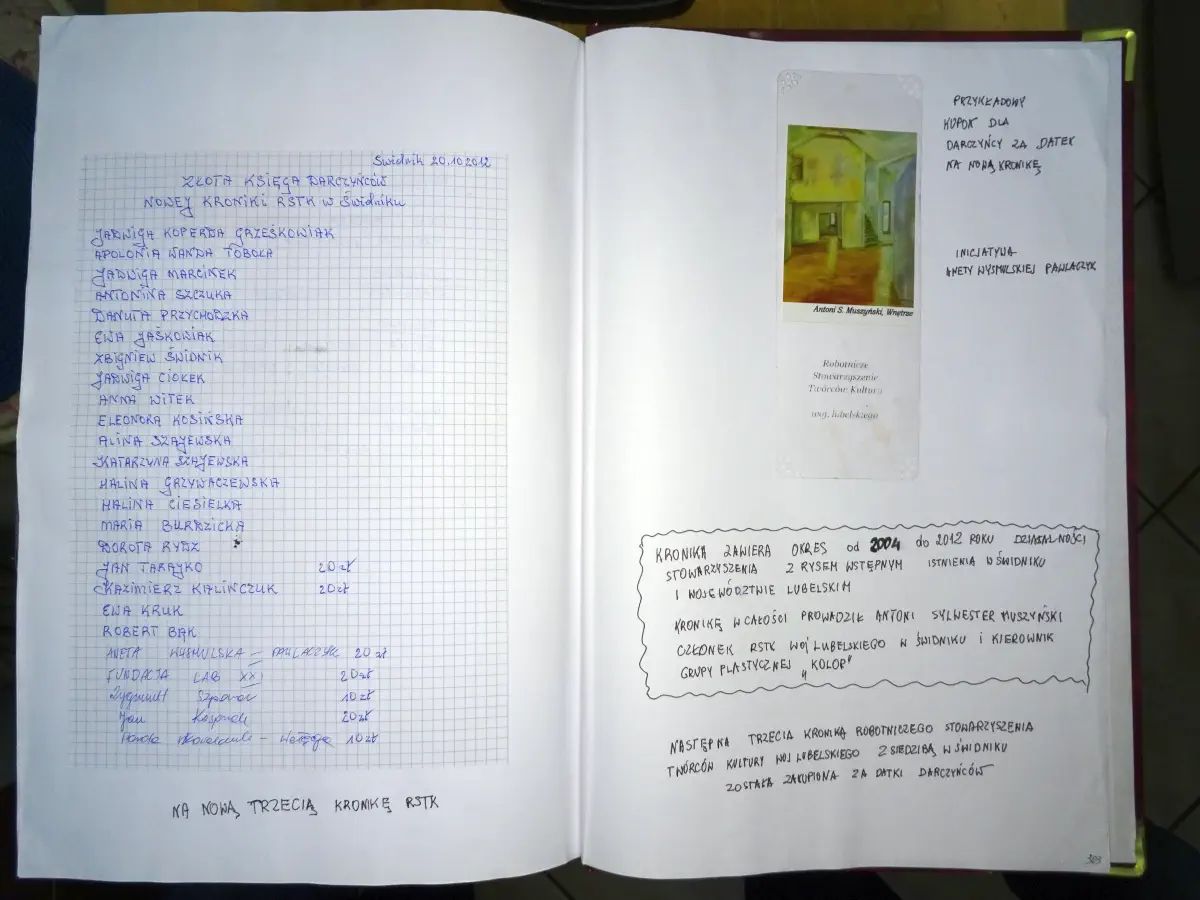 Świdnik 20.10.2012
ZŁOTA KSIĘGA DARCZYŃCÓW
NOWEJ KRONIKI RSTK w Świdniku
JADWIGA KOPERDA GRZEŚKOWIAK
APOLONIA WANDA TOBOŁA
JADWIGA MARCINEK
ANTONINA SZCZUKA
DANUTA PRZYCHODZKA
EWA JAŚKOWIAK
ZBIGNIEW ŚWIDNIK
JADWIGA CIOŁEK
ANNA WITEK
ELEONORA KOSIŃSKA
ALINA SZAJEWSKA
KATARZYNA SZAJEWSKA
HALINA GRZYWACZEWSKA
HALINA CIESIELKA
MARIA
DOROTA RYDZ
JAN TARAJKO 20 zł
KAZIMIERZ KALIŃCZUK 20 zł
EWA KRUK
ROBERT BĄK
ANETA WYSMULSKA – PAWLACZYK 20 zł
FUNDACJA LAB XXI 20 zł
Zygmunt 10 zł
Jan 20 zł
10 zł
NA NOWĄ TRZECIĄ KRONKĘ RSTK
PRZYKŁADOWY
KUPON DLA
DARCZYŃCY ZA DATEK
NA NOWĄ KRONIKĘ
INICJATYWA
ANETY WYSMULSKIEJ PAWLACZYK
Antoni S. Muszyński, Wnętrze
Robotnicze
Stowarzyszenie
Twórców Kultury
woj. lubelskiego
KRONIKA ZAWIERA OKRES od 2004 do 2012 ROKU DZIAŁALNOŚCI
STOWARZYSZENIA Z RYSEM WSTĘPNYM ISTNIENIA W ŚWIDNIKU
I WOJEWÓDZTWIE LUBELSKIM
KRONIKĘ W CAŁOŚCI PROWADZIŁ ANTONI SYLWESTER MUSZYŃSKI
CZŁONEK RSTK WOJ LUBELSKIEGO W ŚWIDNIKU I KIEROWNIK
GRUPY PLASTYCZNEJ „KOLOR"
NASTĘPNA TRZECIA KRONIKA ROBOTNICZEGO STOWARZYSZENIA
TWÓRCÓW KULTURY WOJ LUBELSKIEGO Z SIEDZIBĄ W ŚWIDNIKU
ZOSTAŁA ZAKUPIONA ZA DATKI DARCZYŃCÓW